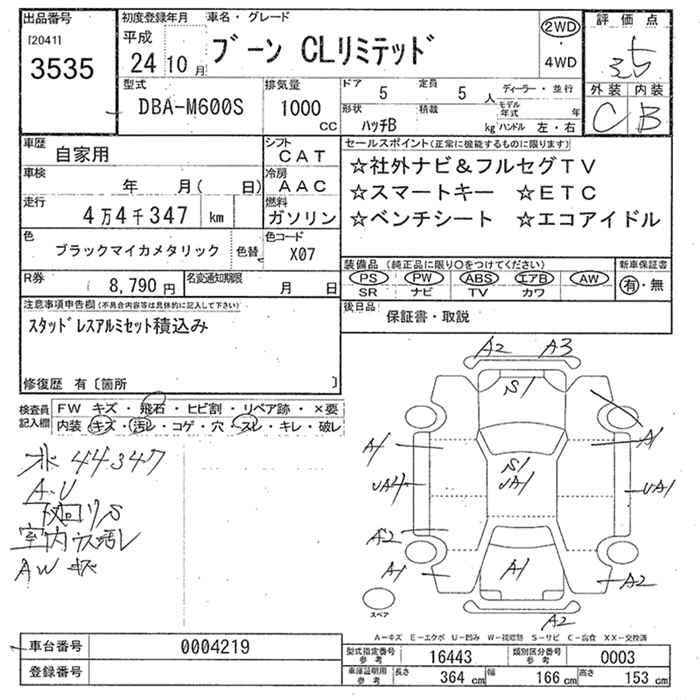 出品番号
[2041]
3535
初度登録年月 車名・グレード
平成
24 10月
ブーン CLリミテッド
2WD
・
4WD
評価点
3.5
外装 内装
C B
型式
DBA-M600S
排気量
1000
CC
ドア 5 定員 5 人
形状 積載
ハッチB kg
ディーラー・並行
モデル年式 年
ハンドル 左・右
車歴
自家用
シフト
CAT
車検
年 月( 日)
冷房
AAC
走行
4万4千347 km
燃料
ガソリン
色
ブラックマイカメタリック
色替
色コード
X07
R券
8,790円
名変通知期限
月 日
セールスポイント(正常に機能するものに限ります)
☆社外ナビ&フルセグTV
☆スマートキー ☆ETC
☆ベンチシート ☆エコアイドル
装備品(純正品に限り○をつけてください)
PS PW ABS エアB AW
SR ナビ TV カワ
新車保証書
有・無
後日品
保証書・取説
注意事項申告欄(不具合内容等は具体的に記入して下さい)
スタッドレスアルミセット積込み
修復歴 有〔箇所 〕
検査員
記入欄
FW キズ・飛石・ヒビ割・リペア跡・×要
内装・キズ・汚レ・コゲ・穴・スレ・キレ・破レ
44347
A.U
下回りS
室内ウス汚レ
AW キズ
A2 A3
S1
A1 A1
S1
UA4 UA1 UA1
A2
A1 A1 A2
A2
スペア
A-キズ E-エクボ U-凹ミ W-補修跡 S-サビ C-腐食 XX-交換済
車台番号 0004219
登録番号
型式指定番号
参考
16443
類別区分番号
参考
0003
車庫証明用
参考
長さ 364 cm 幅 166 cm 高さ 153 cm